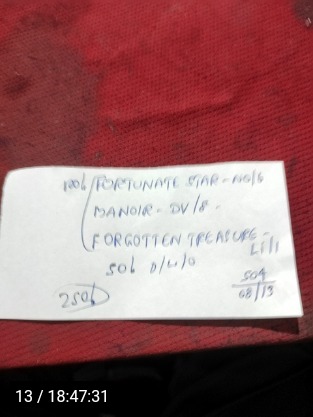 FORTUNATE STAR -
MANOIR - DV/8 -
FORGOTTEN TREASURE -
LI/1
50b D/W/D
250b
509
68/13
13 / 18:47:31